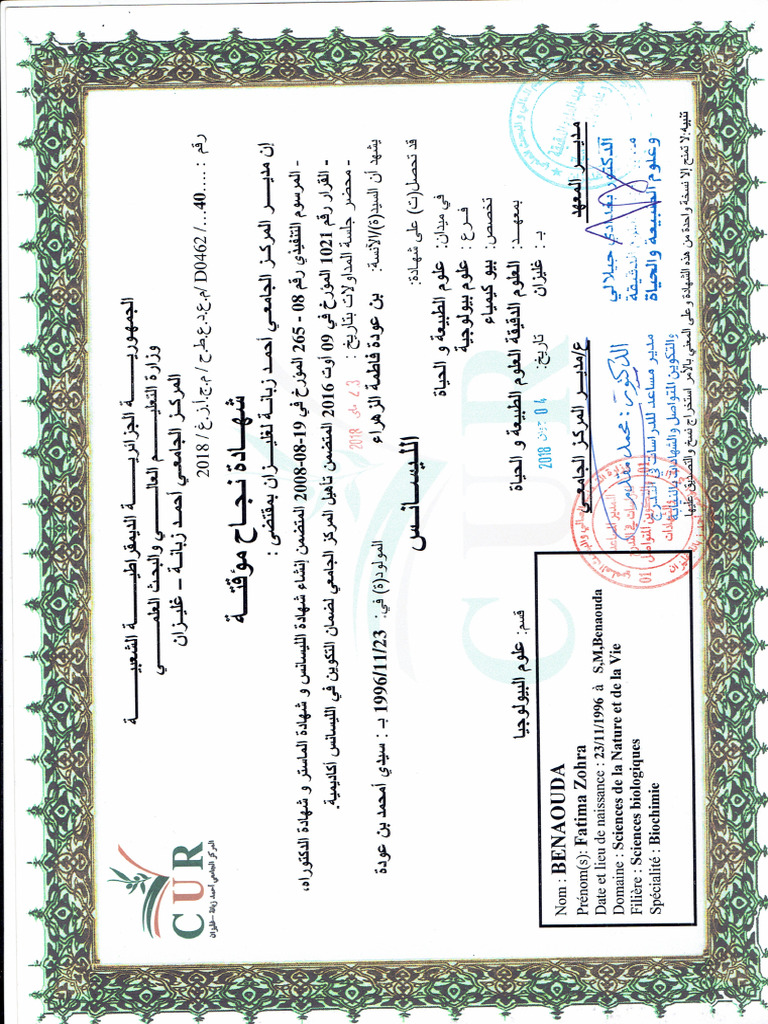 الجمهوريـــة الجزائريـــة الديمقراطيـــة الشعبيـــة
وزارة التعليـــم العالـــي والبحث العلمـــي
المركز الجامعي أحمد زبانة - غليزان
CUR
المركز الجامعي أحمد زبانة - غليزان
رقم : .....40..../ D0462/م.ع.د.ع.ط.ح / م.ج.أ.ز.غ / 2018
شهـــادة نجـــاح مؤقتـــة
إن مديـــر المركـــز الجامعـــي أحمـــد زبانـــة لغليـــزان بمقتضى :
- المرسوم التنفيذي رقم 08 - 265 المؤرخ في 19-08-2008 المتضمن إنشاء شهادة الليسانس و شهادة الماستر و شهادة الدكتوراه،
- القرار رقم 1021 المؤرخ في 09 أوت 2016 المتضمن تأهيل المركز الجامعي لضمان التكوين في الليسانس أكاديمية.
- محضر جلسة المداولات بتاريخ : 23 ماي 2018
يشهد أن السيد(ة)/الآنسة: بن عودة فاطمة الزهراء المولود(ة) في: 1996/11/23 بـ : سيدي أمحمد بن عودة
قد تحصل(ت) على شهادة:
الليســـانس
في ميدان: علوم الطبيعة و الحياة
فـــرع : علوم بيولوجية
تخصص: بيو كيمياء
بمعهـــد: العلوم الدقيقة العلوم الطبيعة و الحياة قسم: علوم البيولوجيا
بـ : غليزان تاريخ: 04 جوان 2018
مديـــر المعهد
ع/مديـــر المركـــز الجامعـــي
وعلوم الطبيعة والحياة
الدكتور : محمد مقدم
مدير مساعد للدراسات في التدرج
والتكوين المتواصل والشهادات
01
Nom : BENAOUDA
Prénom(s): Fatima Zohra
Date et lieu de naissance : 23/11/1996 à S.M,Benaouda
Domaine : Sciences de la Nature et de la Vie
Filière : Sciences biologiques
Spécialité : Biochimie
تنبيه: لا تمنح إلا نسخة واحدة من هذه الشهادة و على المعني بالأمر استخراج نسخ و التصديق عليها